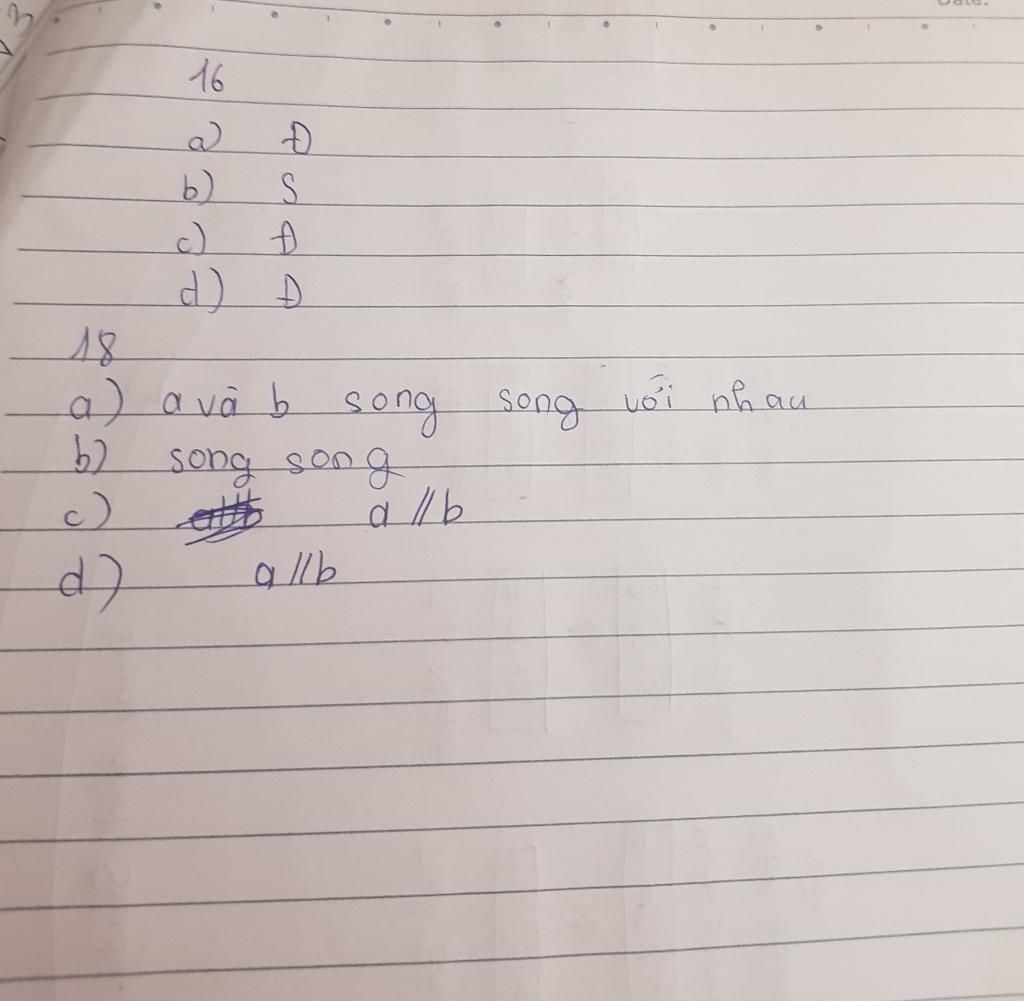 16
a) Đ
b) S
c) Đ
d) Đ
18
a) a và b song song với nhau
b) song song
c) a // b
d) a // b